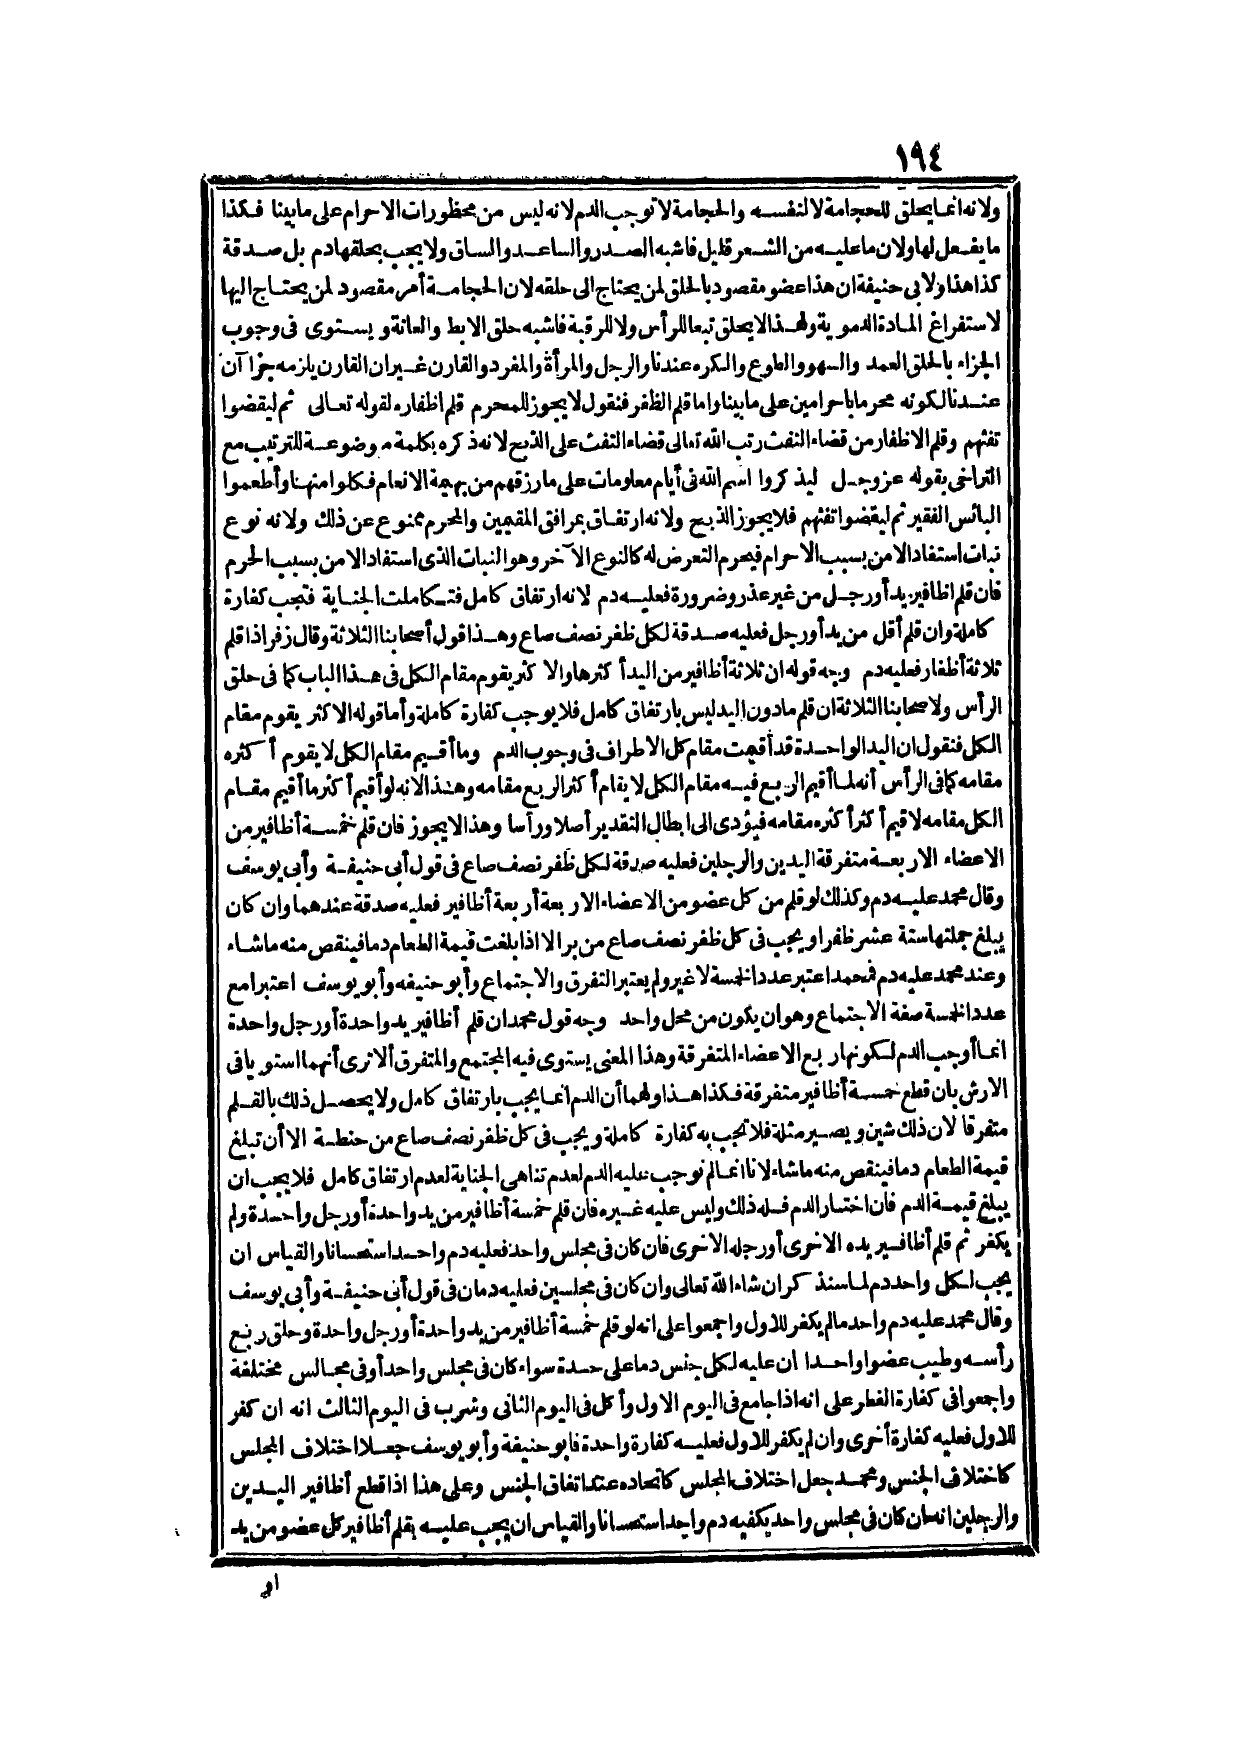 ١٩٤
ولانه انما يحلق للحجامة لا لنفسه والحجامة لا توجب الدم لانه ليس من محظورات الاحرام على ما بينا فكذا
ما يفعل لها ولان ما عليه من الشعر قليل فاشبه الصدر والساعد والساق ولا يجب بحلقها دم بل صدقة
كذا هذا ولابي حنيفة ان هذا عضو مقصود بالحلق لمن يحتاج الى حلقه لان الحجامة أمر مقصود لمن يحتاج اليها
لاستفراغ المادة الدموية ولهذا لا يحلق تبعا للرأس ولا للرقبة فاشبه حلق الابط والعانة ويستوى فى وجوب
الجزاء بالحلق العمد والسهو والطوع والكره عندنا والرجل والمرأة والمفرد والقارن غير ان القارن يلزمه جزاآن
عندنا لكونه محرما باحرامين على ما بينا واما قلم الظفر فنقول لا يجوز للمحرم قلم اظفاره لقوله تعالى ثم ليقضوا
تفثهم وقلم الاظفار من قضاء التفث رتب الله تعالى قضاء التفث على الذبح لانه ذكره بكلمة موضوعة للترتيب مع
التراخى بقوله عز وجل ليذكروا اسم الله فى أيام معلومات على ما رزقهم من بهيمة الانعام فكلوا منها وأطعموا
البائس الفقير ثم ليقضوا تفثهم فلا يجوز الذبح ولانه ارتفاق بمرافق المقيمين والمحرم ممنوع عن ذلك ولانه نوع
نبات استفاد الامن بسبب الاحرام فيحرم التعرض له كالنوع الآخر وهو النبات الذى استفاد الامن بسبب الحرم
فان قلم اظافير يد أو رجل من غير عذر وضرورة فعليه دم لانه ارتفاق كامل فتكاملت الجناية فتجب كفارة
كاملة وان قلم أقل من يد أو رجل فعليه صدقة لكل ظفر نصف صاع وهذا قول أصحابنا الثلاثة وقال زفر اذا قلم
ثلاثة أظفار فعليه دم وجه قوله ان ثلاثة أظافير من اليد أكثرها والاكثر يقوم مقام الكل فى هذا الباب كما فى حلق
الرأس ولاصحابنا الثلاثة ان قلم ما دون اليد ليس بارتفاق كامل فلا يوجب كفارة كاملة وأما قوله الاكثر يقوم مقام
الكل فنقول ان اليد الواحدة قد أقيمت مقام كل الاطراف فى وجوب الدم وما أقيم مقام الكل لا يقوم أكثره
مقامه كما فى الرأس أنه لما أقيم الربع فيه مقام الكل لا يقام أكثر الربع مقامه وهذا لانه لو أقيم أكثر ما أقيم مقام
الكل مقامه لاقيم أكثر أكثره مقامه فيؤدى الى ابطال التقدير أصلا ورأسا وهذا لا يجوز فان قلم خمسة أظافير من
الاعضاء الاربعة متفرقة اليدين والرجلين فعليه صدقة لكل ظفر نصف صاع فى قول أبى حنيفة وأبى يوسف
وقال محمد عليه دم وكذلك لو قلم من كل عضو من الاعضاء الاربعة أربعة أظافير فعليه صدقة عندهما وان كان
يبلغ جملتها ستة عشر ظفرا ويجب فى كل ظفر نصف صاع من بر الا اذا بلغت قيمة الطعام دما فينقص منه ما شاء
وعند محمد عليه دم فمحمد اعتبر عدد الخمسة لا غير ولم يعتبر التفرق والاجتماع وأبو حنيفه وأبو يوسف اعتبرا مع
عدد الخمسة صفة الاجتماع وهو ان يكون من محل واحد وجه قول محمد ان قلم أظافير يد واحدة أو رجل واحدة
انما أوجب الدم لكونها ربع الاعضاء المتفرقة وهذا المعنى يستوى فيه المجتمع والمتفرق ألا ترى أنهما استويا فى
الارش بان قطع خمسة أظافير متفرقة فكذا هذا ولهما أن الدم انما يجب بارتفاق كامل ولا يحصل ذلك بالقلم
متفرقا لان ذلك شين ويصير مثلة فلا تجب به كفارة كاملة ويجب فى كل ظفر نصف صاع من حنطة الا أن تبلغ
قيمة الطعام دما فينقص منه ما شاء لانا انما لم نوجب عليه الدم لعدم تناهى الجناية لعدم ارتفاق كامل فلا يجب ان
يبلغ قيمة الدم فان اختار الدم فله ذلك وليس عليه غيره فان قلم خمسة أظافير من يد واحدة أو رجل واحدة ولم
يكفر ثم قلم أظافير يده الاخرى أو رجله الاخرى فان كان فى مجلس واحد فعليه دم واحد استحسانا والقياس ان
يجب لكل واحد دم لما سنذكر ان شاء الله تعالى وان كان فى مجلسين فعليه دمان فى قول أبى حنيفة وأبى يوسف
وقال محمد عليه دم واحد ما لم يكفر للاول واجمعوا على انه لو قلم خمسة أظافير من يد واحدة أو رجل واحدة وحلق ربع
رأسه وطيب عضوا واحدا ان عليه لكل جنس دما على حدة سواء كان فى مجلس واحد أو فى مجالس مختلفة
واجمعوا فى كفارة الفطر على انه اذا جامع فى اليوم الاول وأكل فى اليوم الثانى وشرب فى اليوم الثالث انه ان كفر
للاول فعليه كفارة أخرى وان لم يكفر للاول فعليه كفارة واحدة فابو حنيفة وأبو يوسف جعلا اختلاف المجلس
كاختلاف الجنس ومحمد جعل اختلاف المجلس كاتحاده عند اتفاق الجنس وعلى هذا اذا قطع أظافير اليدين
والرجلين انه ان كان فى مجلس واحد يكفيه دم واحد استحسانا والقياس ان يجب عليه بقلم أظافير كل عضو من يد
او